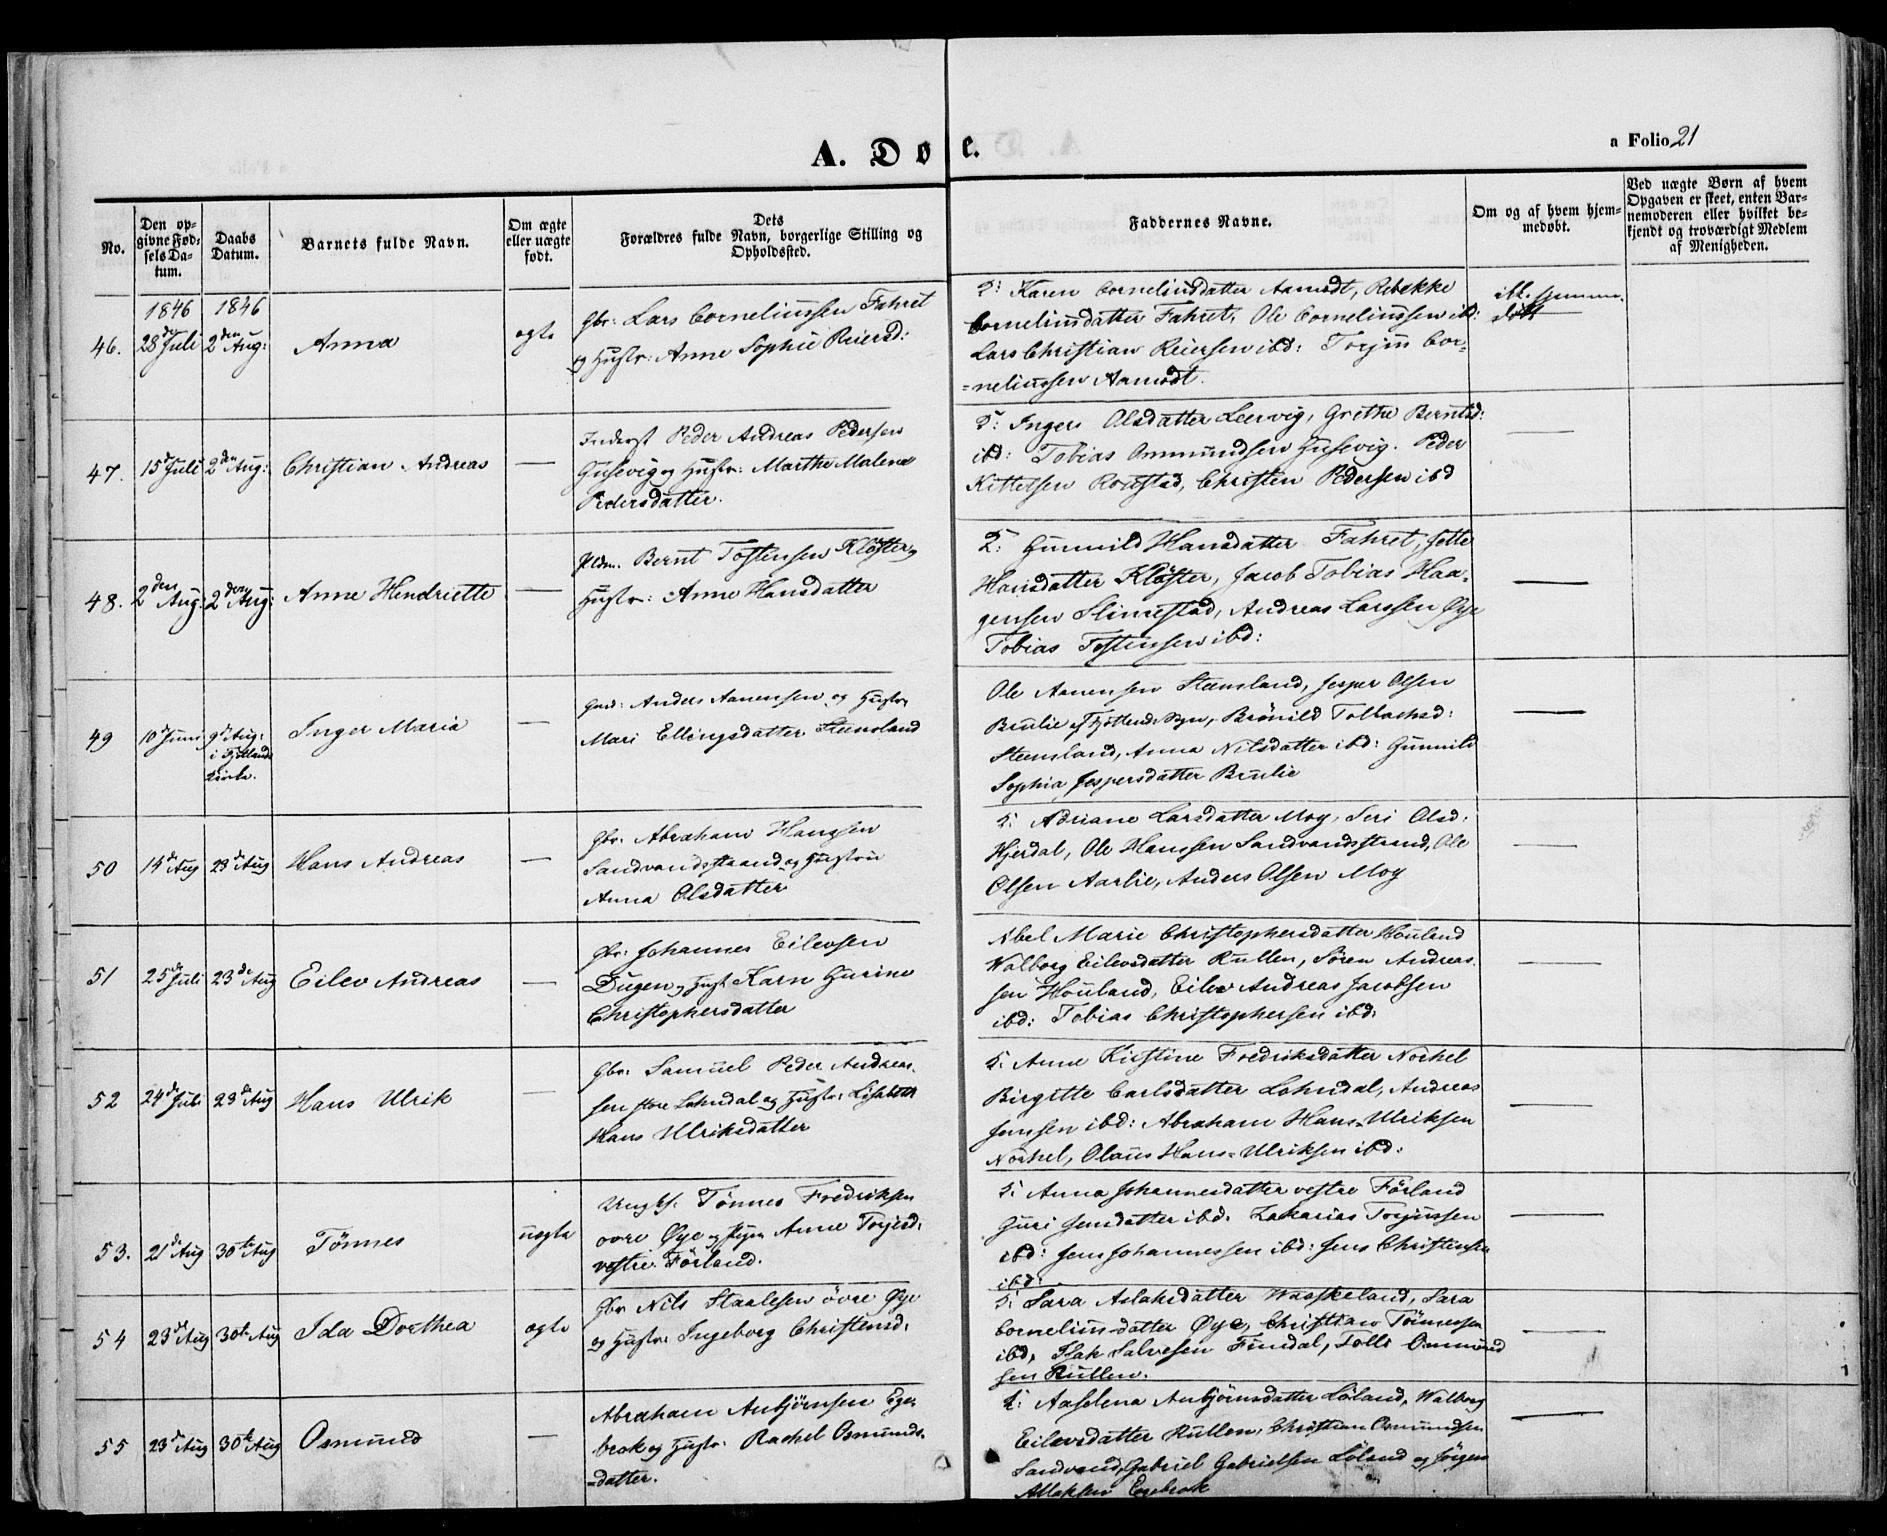 A. Døbe.
a Folio 21
No.
Den opgivne Fødsels Datum.
Daabs Datum.
Barnets fulde Navn.
Om ægte eller uægte født.
Dets Forældres fulde Navn, borgerlige Stilling og Opholdssted.
Faddernes Navne.
Om og af hvem hjemmedøbt.
Ved uægte Børn af hvem Opgaven er skeet, enten Barnemoderen eller hvilket bekjendt og troværdigt Medlem af Menigheden.
1846 1846
46. 28de Juli 2den Aug: Anna ægte
Gbr: Lars Corneliussen Fahret
og Hustr: Anne Sophie Reiersd:
5: Karen Corneliusdatter Aamodt, Rebekke
Corneliusdatter Fahret, Ole Corneliussen ibd:
Lars Christian Reiersen ibd: Torjus Cor-
=neliussen Aamodt.
ikke hjemme-
døbt
47. 15de Juli 2den Aug: Christian Andreas —
Inderst Peder Andreas Pedersen
Gusevig og Hustr: Marthe Malene
Pedersdatter.
5: Inger Olsdatter Leervig, Grethe Berntsd:
ibd: Tobias Ommundsen Gusevig. Peder
Kittelsen Rodstad, Christen Pedersen ibd
—
48. 2den Aug: 2den Aug: Anne Hendriette —
Pldm. Bernt Tostensen Kloster og
Hustr: Anne Hansdatter
5: Gunnild Hansdatter Fahret, Jotte
Hansdatter Kloster, Jacob Tobias Haa-
gensen Slimestad, Andreas Larssen Øye
Tobias Tostensen ibd:
—
49 10de Juni 9de Aug: i Fjotlands Kirke. Inger Maria —
Gmd: Anders Aanensen og Hustr.
Mari Ellingsdatter Steensland
Ole Aanensen Steensland, Jesper Olsen
Brulie af Fjotlands Sogn, Brönild Tollachsd:
Steensland, Anna Nilsdatter ibd: Gunnild
Sophia Jespersdatter Brulie
—
50 14de Aug 23de Aug Hans Andreas —
Gbr: Abraham Hanssen
Sandvandsstrand og Hustru
Anna Olsdatter
5: Adriane Larsdatter Moy, Seri Olsd:
Hjerdal, Ole Hanssen Sandvandsstrand, Ole
Olsen Aarlie, Anders Olsen Moy
—
51 25de Juli 23de Aug Eilev Andreas —
Gbr: Johannes Eilevsen
Dugen og Hust Karn Gurine
Christophersdatter
Abel Marie Christophersdatter Houland
Walborg Eilevsdatter Rullen, Sören Andreas-
sen Houland, Eilev Andreas Jacobsen
ibd: Tobias Christophersen ibd:
—
52 24de Juli 23de Aug Hans Ulrik —
Gbr: Samuel Peder Andreas-
sen store Lohndal og Hustr: Lisabeth
Hans Ulriksdatter
5: Anne Kirstine Fredriksdatter Nothel
Birgitte Carlsdatter Lohndal, Andreas
Jensen ibd: Abraham Hans-Ulriksen
Nothel, Olaus Hans=Ulriksen ibd:
—
53. 21de Aug 30te Aug Tönnes uægte
Ungks. Tönnes Fredriksen
övre Øye og Pigen Anne Torjusd:
vestre Förland.
5: Anna Johannesdatter vestre Förland
Guri Jensdatter ibd. Zakarias Torjussen
ibd: Jens Johannessen ibd: Jens Christensen
ibd:
—
54 23de Aug 30te Aug Ida Dorthea ægte
Gbr Nils Staalesen övre Øye
og Hustr: Ingeborg Christensd:
5: Sara Aslaksdatter Waaskeland, Sara
Cornelius-datter Øye, Christian Tönnessen
ibd, Isak Salvesen Fundal, Tolle Ommund
sen Rullen.
—
55 23de Aug 30te Aug Osmund —
Abraham Anbjörnsen Ege-
brok og Hustr: Rachel Osmunds-
-datter.
5: Aaselena Anbjörnsdatter Löland, Walborg
Eilevsdatter Rullen, Christian Osmundsen
Sandvand, Gabriel Gabrielsen Löland og Jörgen
Atlaksen Egebrok
—